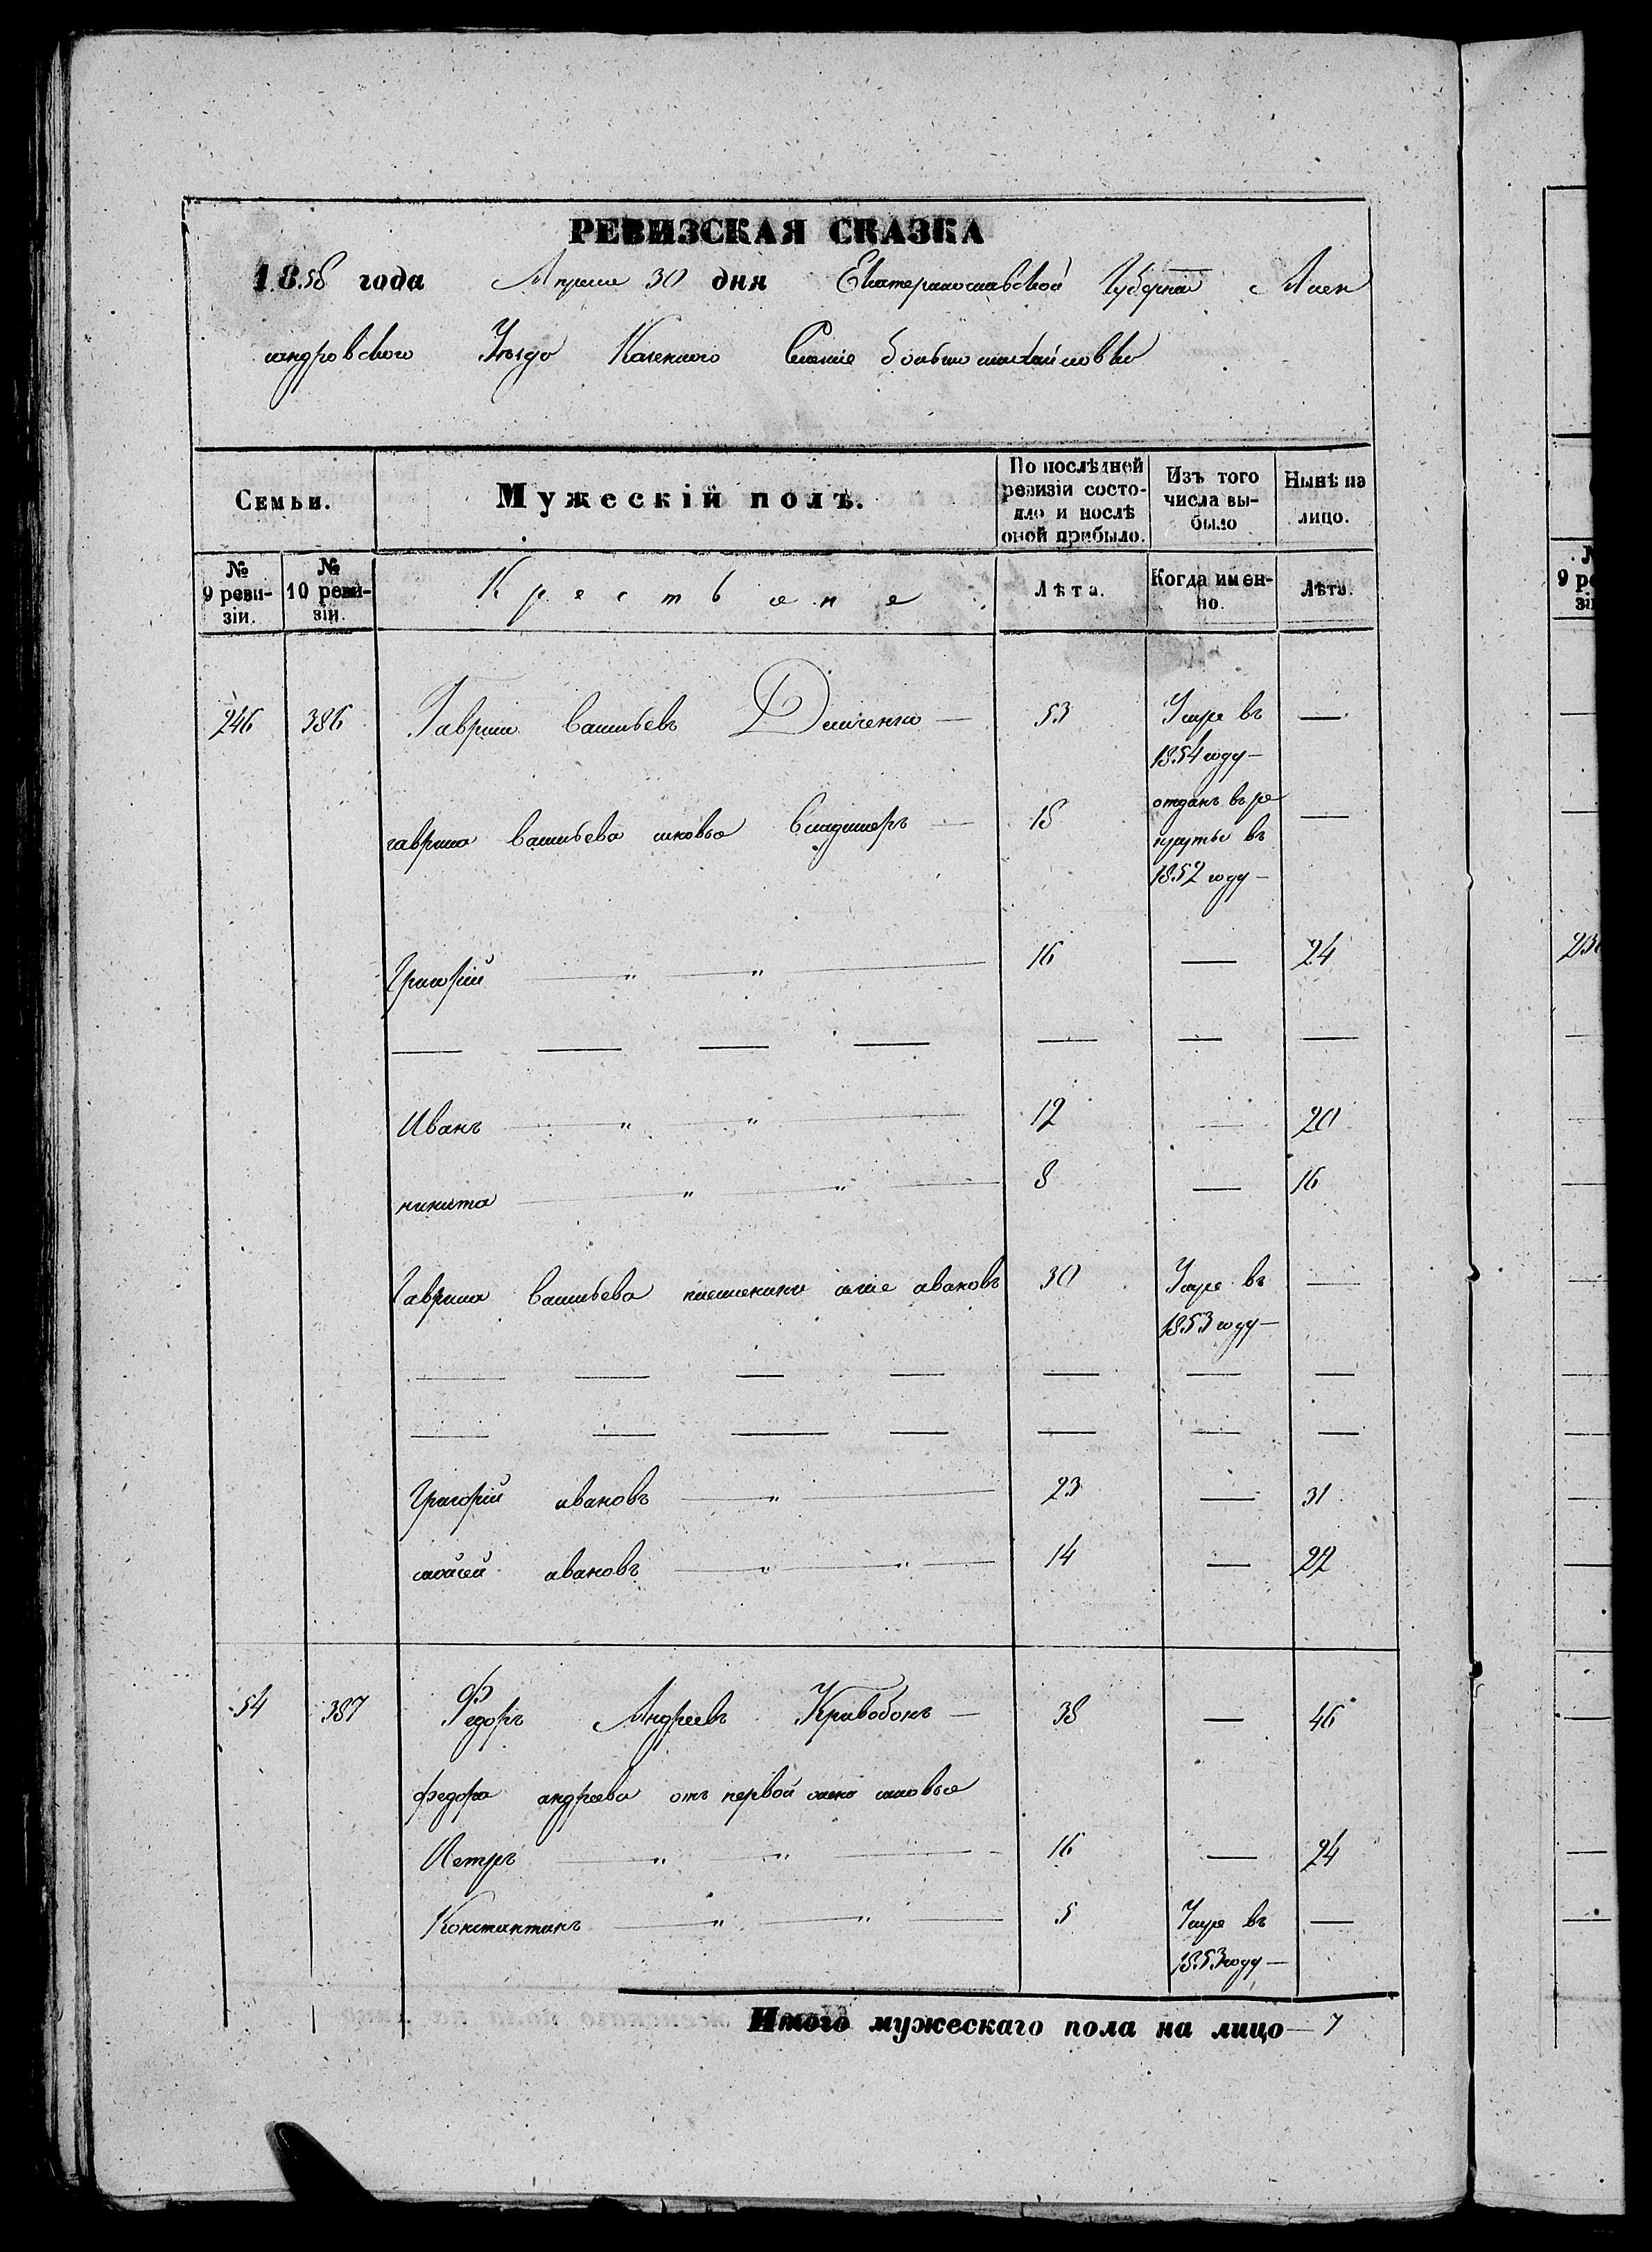 РЕВИЗСКАЯ СКАЗКА
1858 года Апреля 30 дня Екатеринославской Губернии Алек
сандровского Уезда Казенного Селения большемихайловки
Семьи.
Мужескій полъ.
По послѣдней ревизіи состояло и послѣ оной прибыло.
Изъ того числа выбыло
Нынѣ на лицо.
№ 9 ревизіи.
№ 10 ревизіи.
Крестьяне
Лѣта.
Когда именно.
Лѣта.
246 386 Гаврило Васильевъ 53 Умре въ —
1854 году —
гаврила Васильева сыновья Владимеръ — 18 отданъ въ ре —
круты въ
1852 году —
Григорій — " — " — 16 — 24
— — — — — — —
Иванъ — " — " — 12 — 20
никита — " — " — 8 — 16
Гаврила Васильева племянники ивановъ 30 Умре въ —
1853 году —
— — — — — — —
— — — — — — —
Григорій ивановъ — " — 23 — 31
мойсей ивановъ — " — " — 14 — 22
54 387 Федоръ Андреевъ Кривобокъ — 38 — 46
федора андреева отъ первой жены сыновья
Петръ — " — " — 16 — 24
Константинъ — " — " — 5 Умре въ —
1853 году —
Итого мужескаго пола на лицо — 7
9 ре
зі